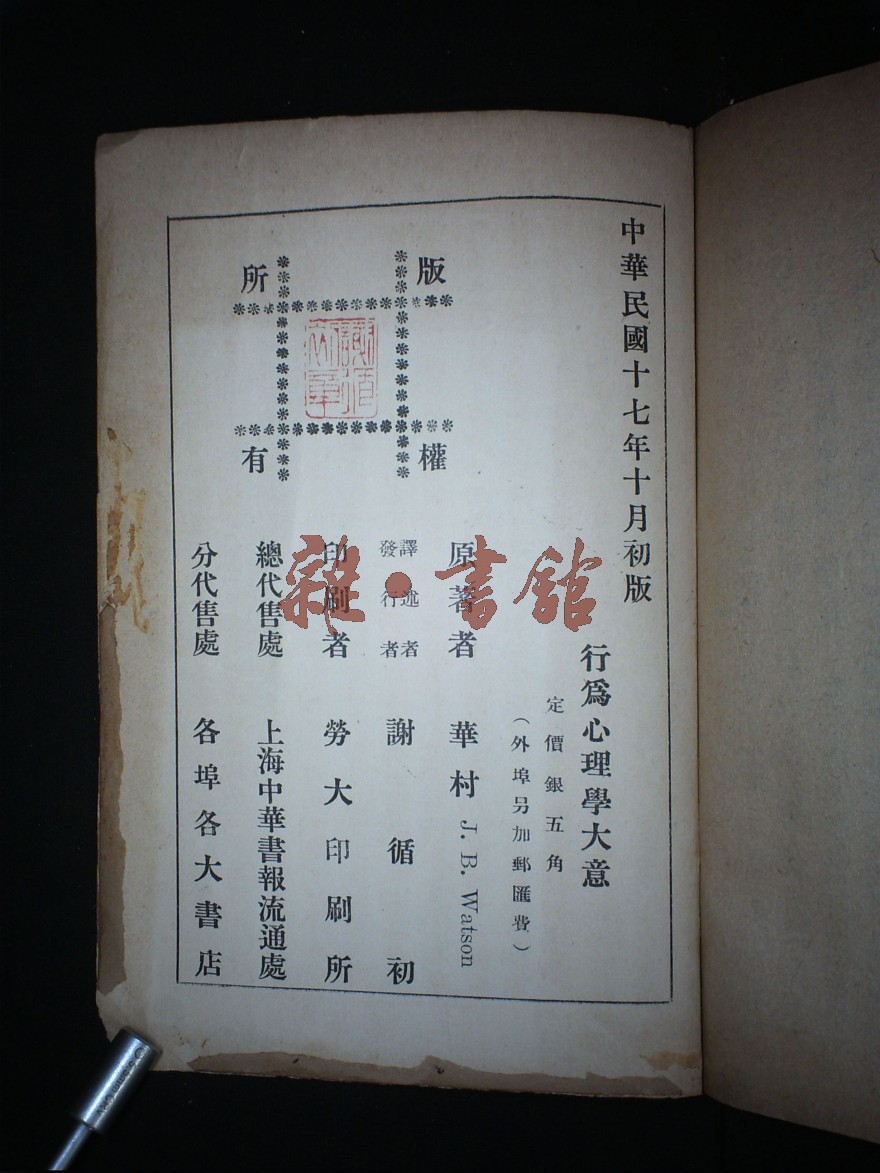 中華民國十七年十月初版
行爲心理學大意
定價銀五角
（外埠另加郵匯費）
版權所有
原著者 華村 J. B. Watson
譯述者
發行者
謝循初
印刷者 勞大印刷所
總代售處 上海中華書報流通處
分代售處 各埠各大書店
謝循初章
雜·書館